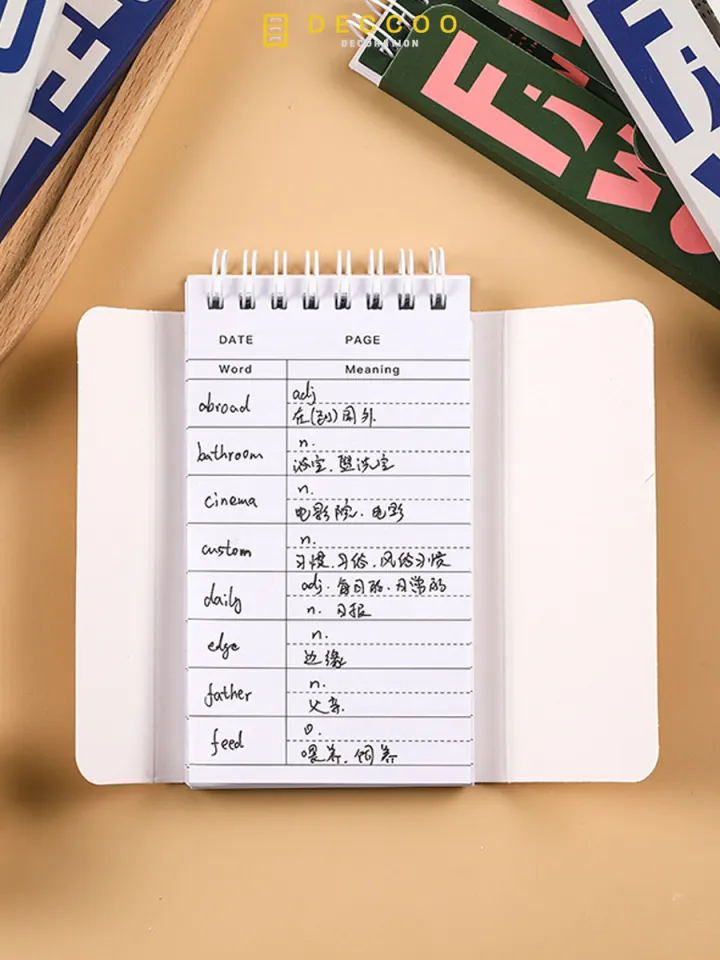 DECCOO
DECORATION
DATE PAGE
Word Meaning
abroad adj
在(到)国外
bathroom n.
浴室.盥洗室
cinema n.
电影院.电影
custom n.
习惯.习俗.风俗习惯
daily adj.每日的.日常的
n. 日报
edge n.
边缘
father n.
父亲.
feed v.
喂养.饲养